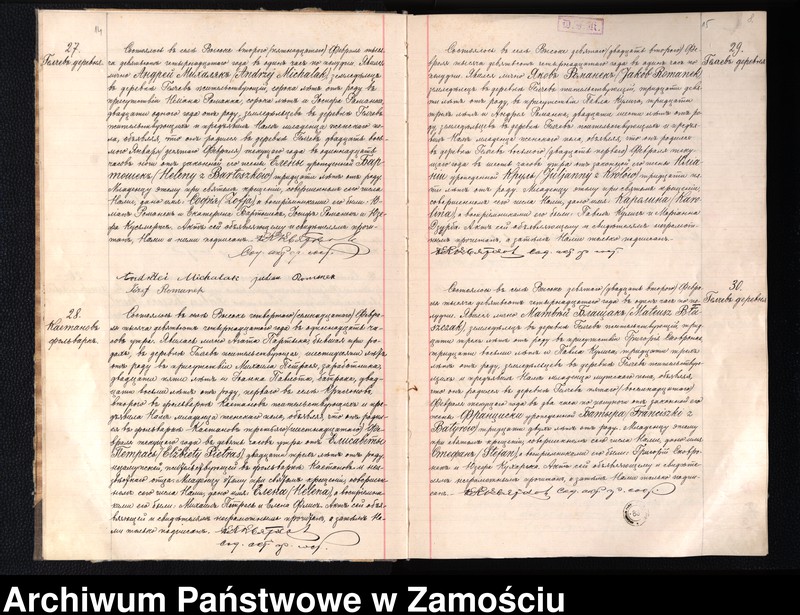 27.
Гылевъ деревня.
Состоялось въ селѣ Высоке второго (пятнадцатаго) Февраля тыся-
ча девятьсотъ четырнадцатаго года въ одинъ часъ по полудни. Явился
лично Андрей Михалякъ (Andrzej Michalak), земледѣлецъ
въ деревнѣ Гылевъ жительствующій, сорока лѣтъ отъ роду въ
присутствіи Романа, сорока лѣтъ и Іосифа Романка,
двадцати одного года отъ роду, земледѣльцевъ въ деревнѣ Гылевъ
жительствующихъ и предъявилъ Намъ младенца женскаго по-
ла, объявляя, что онъ родился въ деревнѣ Гылевъ двадцать вось-
мого Января (десятаго Февраля) текущаго года въ одиннадцать
часовъ ночи отъ законной его жены Елены урожденной Бар-
тошекъ (Heleny z Bartoszków) тридцати лѣтъ отъ роду.
Младенцу этому при святомъ крещеніи, совершенномъ сего числа
Нами, дано имя Софья (Zofja) а воспріемниками его были:
Романекъ и Екатерина Бартошекъ, Іосифъ Романекъ и
Актъ сей объявляющему и свидѣтелямъ прочи-
танъ, Нами и ими подписанъ.
Andrzei Michalak Julian Romanek
Józef Romanek
28.
Кастановъ
фольваркъ.
Состоялось въ селѣ Высоке четвертаго (семнадцатаго) Февра-
ля тысяча девятьсотъ четырнадцатаго года въ одиннадцать ча-
совъ утра. Явилась лично Агата Партыка, бывшая при ро-
дахъ, въ деревнѣ Гылевъ жительствующая, шестидесяти лѣтъ
отъ роду въ присутствіи Михаила Петрася, заработника
двадцати пяти лѣтъ и Іоанна батрака, двад-
цати восьми лѣтъ отъ роду, перваго въ селѣ
второго въ фольваркѣ Кастановъ жительствующихъ и пре-
дъявила Намъ младенца женскаго пола, объявляя, что онъ родил-
ся въ фольваркѣ Кастановъ третьяго (шестнадцатаго) Фев-
враля текущаго года въ девять часовъ утра отъ Елисаветы
Петрась (Elżbiety Pietraś), двадцати трехъ лѣтъ отъ роду,
незамужней, жительствующей въ фольваркѣ Кастановъ и неиз-
вѣстнаго отца. Младенцу этому при святомъ крещеніи, совершен-
номъ сего числа Нами, дано имя Елена (Helena), а воспріемни-
ками его были: Михаилъ Петрась и Елена Актъ сей объя-
вляющей и свидѣтелямъ неграмотнымъ прочитанъ, а затѣмъ На-
ми только подписанъ.
15
29.
Гылевъ деревня.
Состоялось въ селѣ Высоке девятаго (двадцать второго) Фе-
враля тысяча девятьсотъ четырнадцатаго года въ одинъ часъ по
полудни. Явился лично Яковъ Романекъ (Jakób Romanek)
земледѣлецъ въ деревнѣ Гылевъ жительствующій, тридцати девя-
ти лѣтъ отъ роду, въ присутствіи Павла Кулика, тридцати
трехъ лѣтъ и Андрея Романка, двадцати шести лѣтъ отъ ро-
ду, земледѣльцевъ въ деревнѣ Гылевъ жительствующихъ и предъя-
вилъ Намъ младенца женскаго пола, объявляя, что онъ родился
въ деревнѣ Гылевъ восьмого (двадцать перваго) Февраля теку-
щаго года въ шесть часовъ утра отъ законной его жены Юлiа-
ны урожденной Круль (Julijanny z Królów) тридцати пя-
ти лѣтъ отъ роду. Младенцу этому при святомъ крещеніи,
совершенномъ сего числа Нами, дано имя Каролина (Karo-
lina) а воспріемниками его были: Павелъ Куликъ и Маріанна
Актъ сей объявляющему и свидѣтелямъ неграмот-
нымъ прочитанъ, а затѣмъ Нами только подписанъ.
30.
Гылевъ деревня
Состоялось въ селѣ Высоке девятаго (двадцать второго) Февра-
ля тысяча девятьсотъ четырнадцатаго года въ одинъ часъ по по-
лудни. Явился лично Матвѣй Блащакъ (Mateusz Bła-
szczak), земледѣлецъ въ деревнѣ Гылевъ жительствующій, трид-
цати трехъ лѣтъ отъ роду въ присутствіи Григорія Сковронка
тридцати восьми лѣтъ и Павла Кулика, тридцати трехъ
лѣтъ отъ роду, земледѣльцевъ въ деревнѣ Гылевъ жительствую-
щихъ и предъявилъ Намъ младенца мужскаго пола, объявляя,
что онъ родился въ деревнѣ Гылевъ пятаго (восемнадцатаго)
Февраля текущаго года въ два часа по полудни отъ законной его
жены Франциски урожденной Батыра (Franciszki z
Batyrów) тридцати двухъ лѣтъ отъ роду. Младенцу этому
при святомъ крещеніи, совершенномъ сего числа Нами, дано имя
Стефанъ (Stefan), а воспріемниками его были: Григорій Сковро-
некъ и Актъ сей объявляющему и свидѣте-
лямъ неграмотнымъ прочитанъ, а затѣмъ Нами только подпи-
санъ.
Archiwum Państwowe w Zamościu